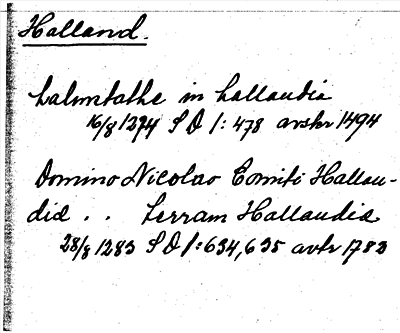 Halland.
halmstathe in hallandia
16/8 1274 SD 1:478 avskr 1494
Domino Nicolao Comiti Hallan-
die . . terram Hallandie
28/8 1283 SD 1:634,635 avskr 1783